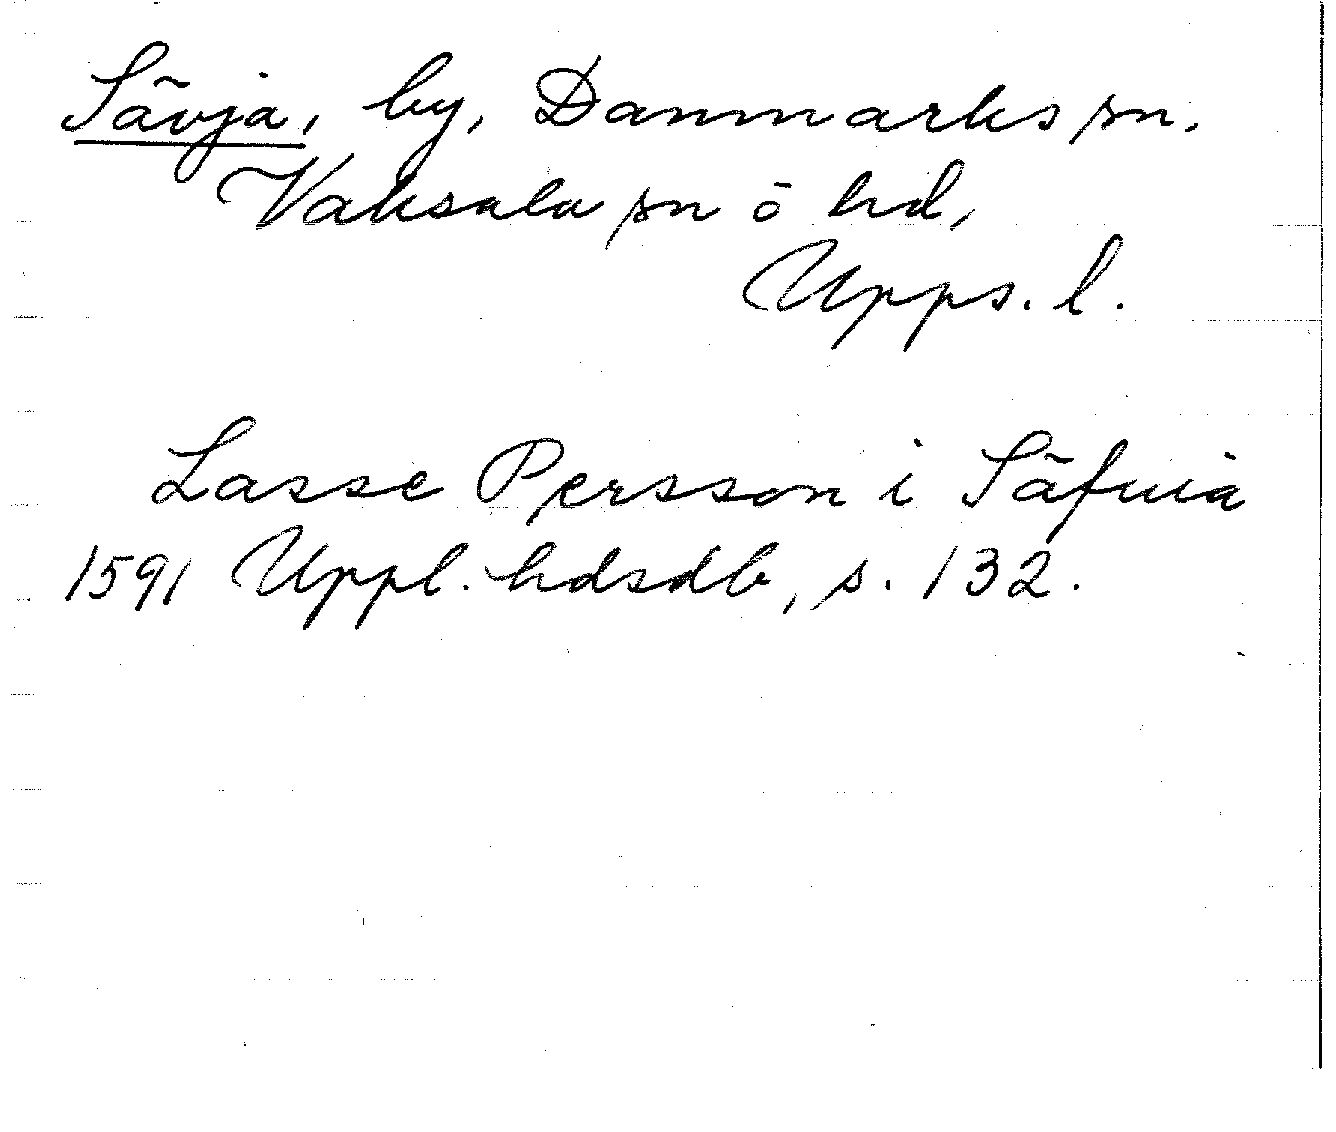 Sävja, by, Danmarks sn.
Vaksala sn ö hd,
Upps. l.
Lasse Persson i Säfuia
1591 Uppl. hdsdb, s. 132.